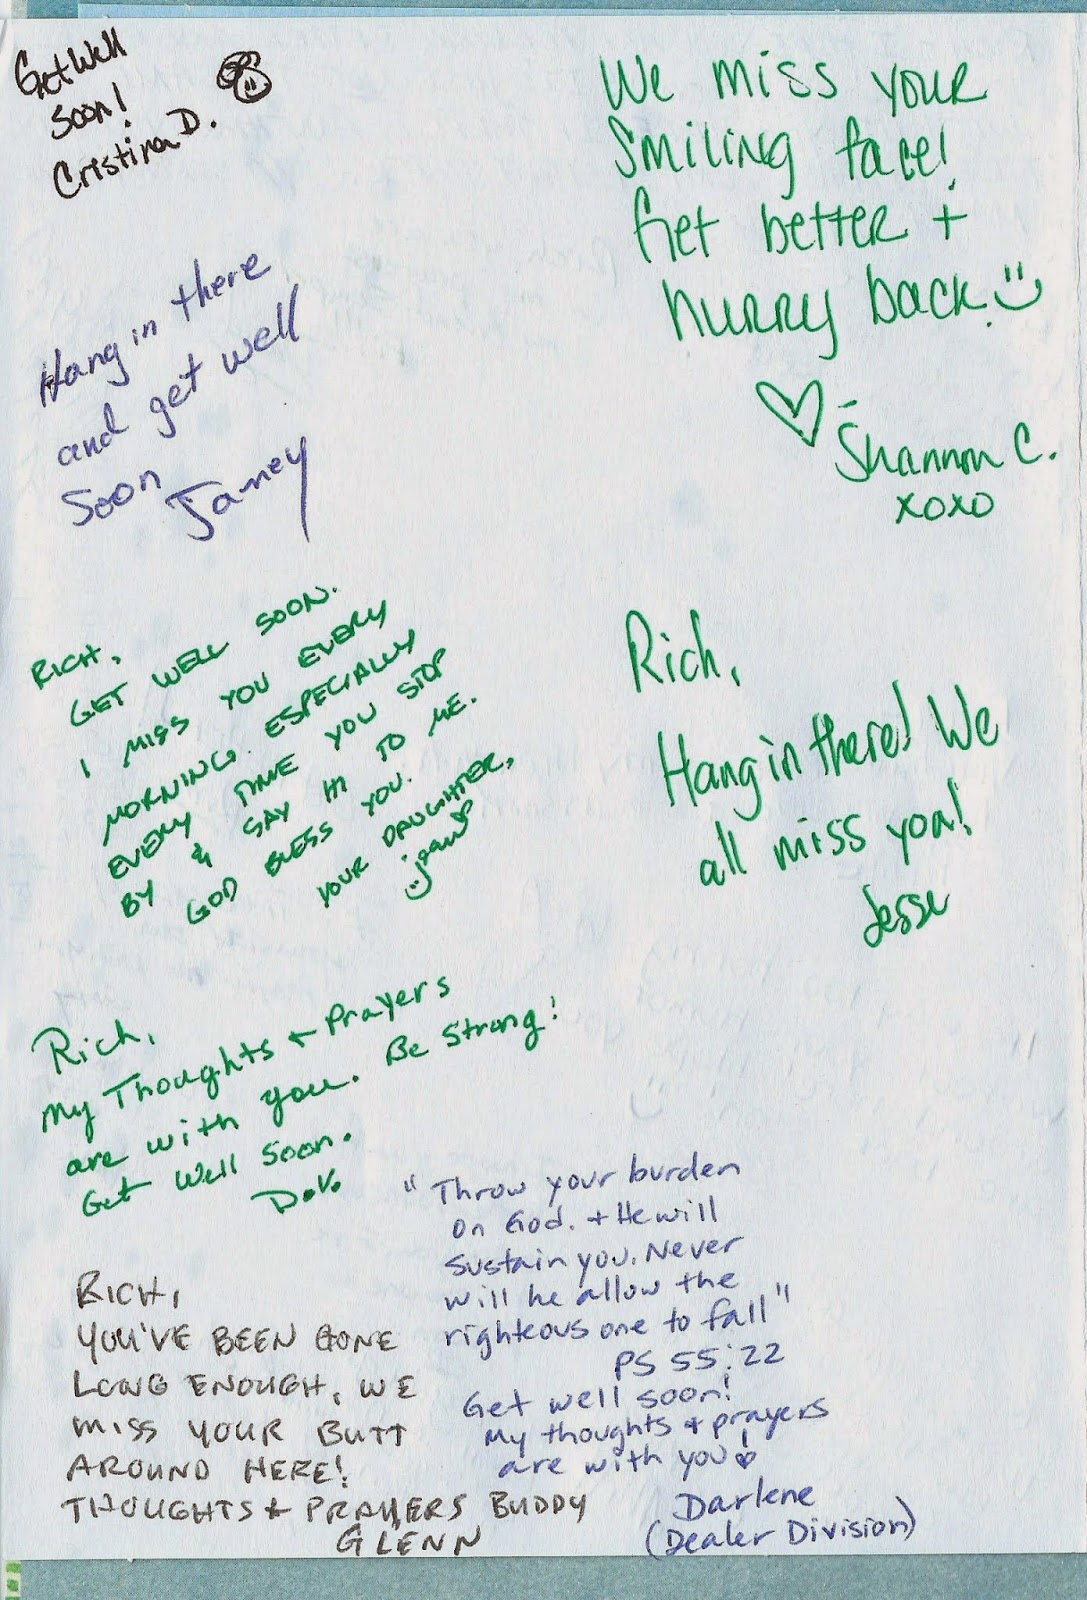 Get Well
Soon!
Cristina D.
We miss your
smiling face!
Get better +
hurry back!
- Shannon C.
xoxo
Hang in there
and get well
soon
Janey
RICH,
GET WELL SOON.
I MISS YOU EVERY
MORNING. ESPECIALLY
EVERY TIME YOU STOP
BY & SAY HI TO ME.
GOD BLESS YOU.
YOUR DAUGHTER,
Rich,
Hang in there! We
all miss you!
Jesse
Rich,
My Thoughts + Prayers
are with you. Be Strong!
Get Well Soon.
D.V.
"Throw your burden
on God. + He will
sustain you. Never
will he allow the
righteous one to fall"
PS 55:22
Get well soon!
My thoughts + prayers
are with you!
Darlene
(Dealer Division)
RICH,
YOU'VE BEEN GONE
LONG ENOUGH, WE
MISS YOUR BUTT
AROUND HERE!
THOUGHTS & PRAYERS BUDDY
GLENN